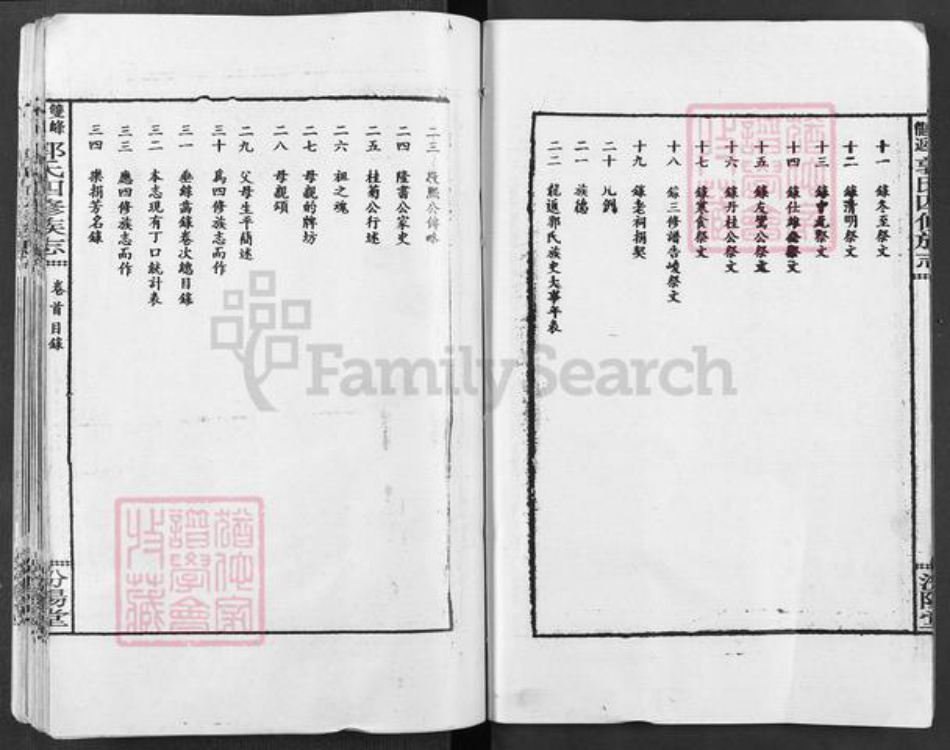 十一 錄冬至祭文
十二 錄清明祭文
十三 錄會元祭文
十四 錄仕雄公祭文
十五 錄友鸞公祭文
十六 錄丹桂公祭文
十七 錄寒食祭文
十八 錄三修譜告峻祭文
十九 錄老祠捐契
二十 凡例
二一 族德
二二 龍返郭氏族史大事年表
郭氏四修族志
汾陽堂
二三 公傳略
二四 隆書公家史
二五 桂菊公行述
二六 祖之魂
二七 母親的牌坊
二八 母親頌
二九 父母生平簡述
三十 為四修族志而作
三一 垂錄舊錄卷次總目錄
三二 本志現有丁口統計表
三三 應四修族志而作
三四 樂捐芳名錄
雙峰 郭氏四修族志
卷首目錄
汾陽堂
FamilySearch